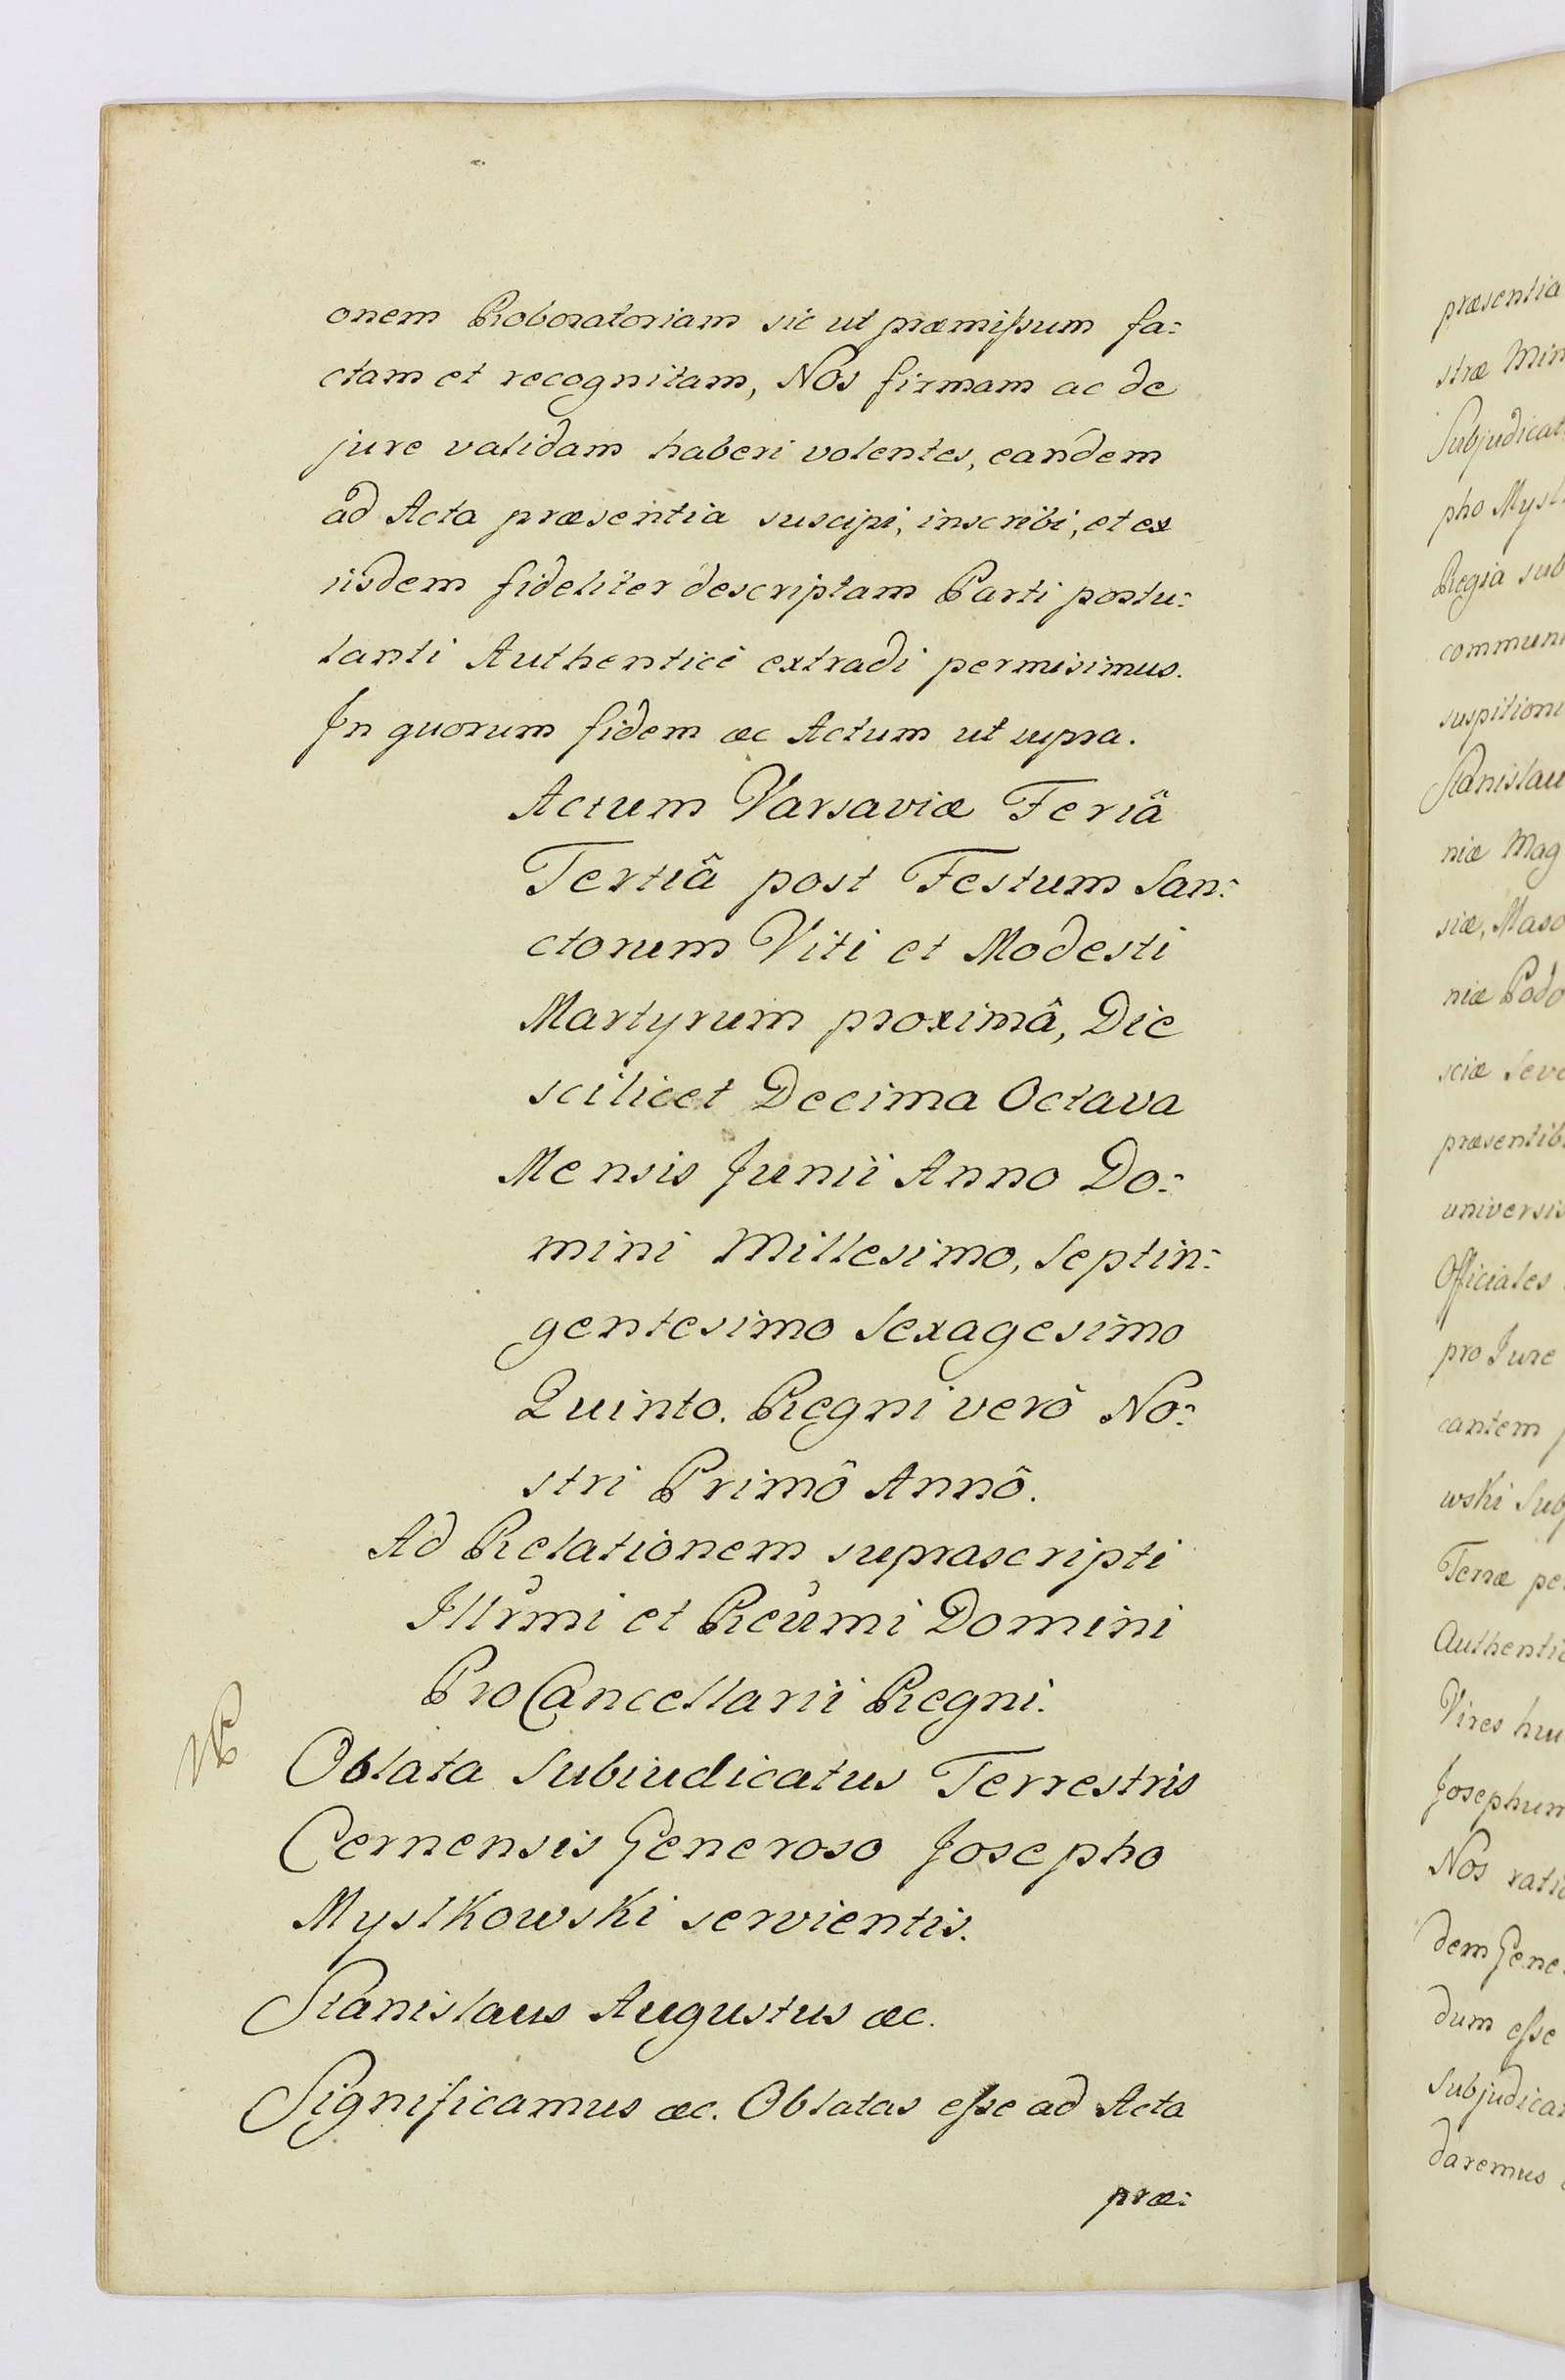 onem Roboratoriam sic ut præmissum fa:
ctam et recognitam, Nos firmam ac de
jure validam haberi volentes, eandem
ad Acta præsentia suscipi, inscribi, et ex
iisdem fideliter descriptam Parti postu:
lanti Authenticè extradi permisimus.
In quorum fidem &c Actum ut supra.
Actum Varsaviæ Feriâ
Tertiâ post Festum San:
ctorum Viti et Modesti
Martyrum proximâ, Die
scilicet Decima Octava
Mensis Junii Anno Do:
mini Millesimo, Septin:
gentesimo Sexagesimo
Quinto. Regni verò No:
stri Primô Annô.
Ad Relationem suprascripti
Illrmi et Reumi Domini
ProCancellarii Regni.
Oblata Subiudicatus Terrestris
Cernensis Generoso Josepho
Mystkowski servientis.
Stanislaus Augustus &c.
Significamus &c. Oblatas esse ad Acta
præ:
præsentia
stræ Min
Subjudicat
pho Myst
Regia sub
communi
suspitioni
Stanislau
niæ Mag
siæ, Maso
niæ Podo
sciæ Seve
præsentib
universis
Officiales
pro Jure
cantem
wski Subj
Terræ pe
Authentic
Vires hu
Josephum
Nos ratio
dem Gene
dum esse
Subjudicat
daremus